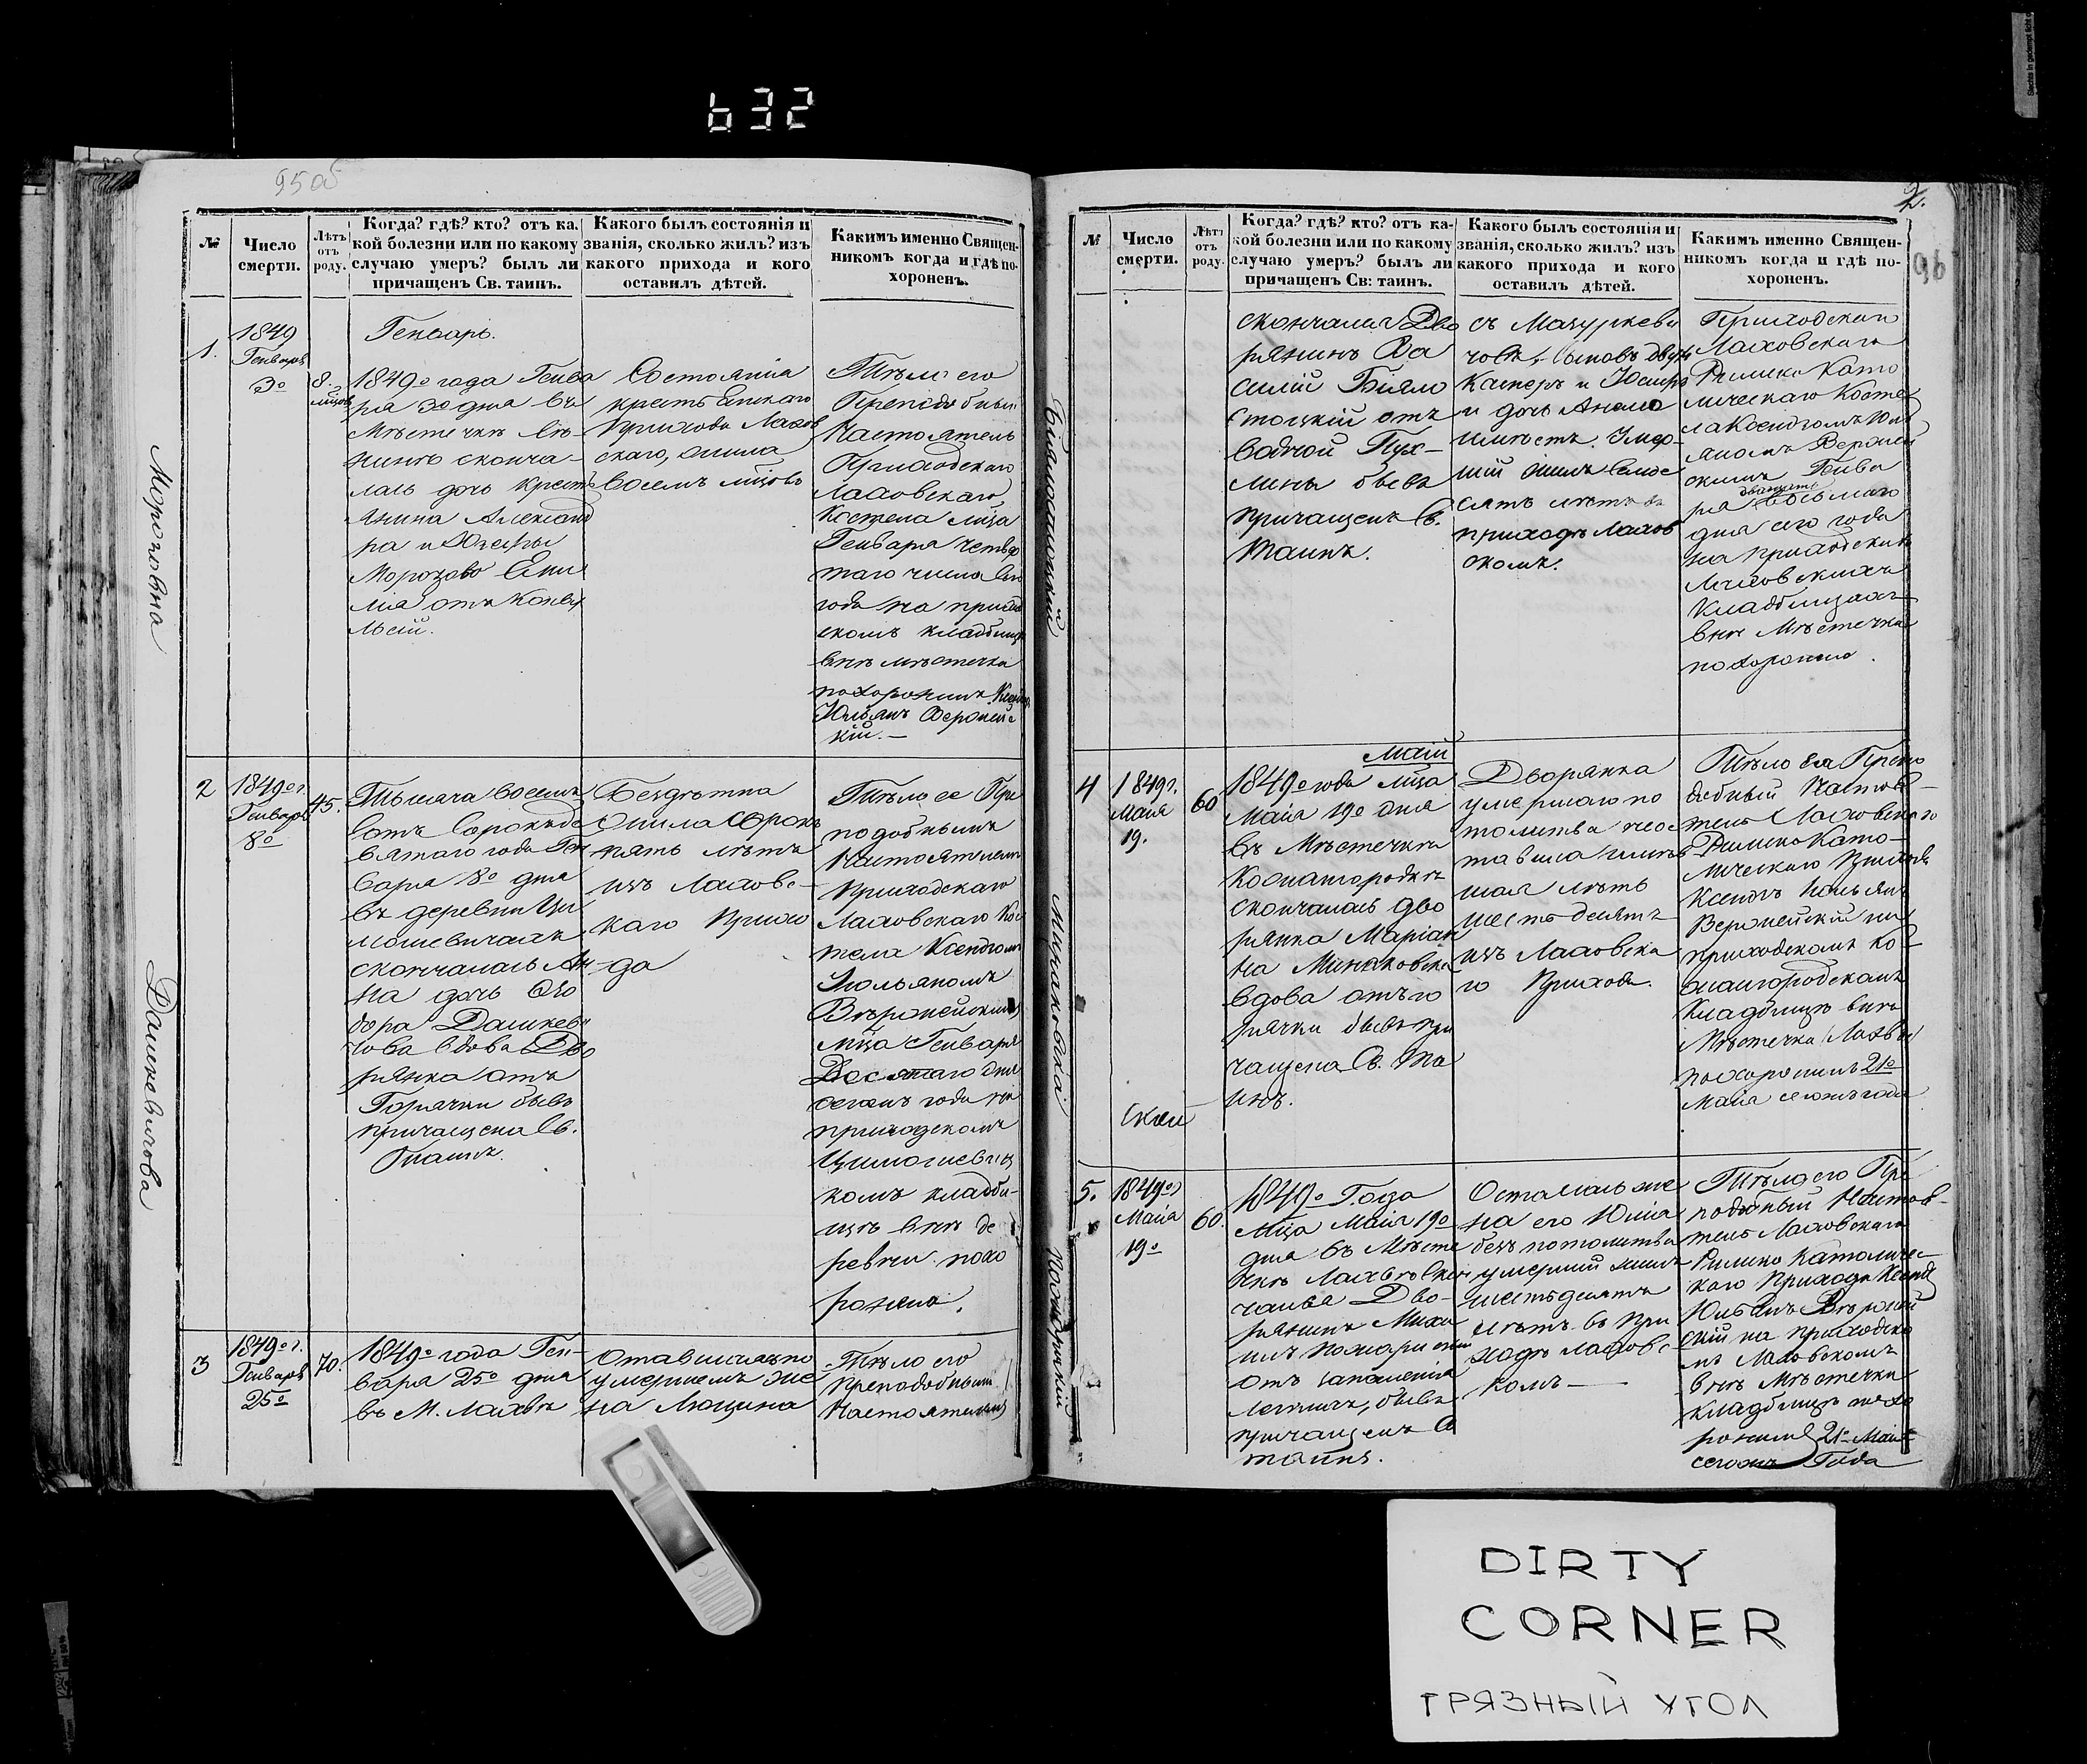 632
95об
№
Число
смерти.
Лѣтъ
отъ
роду.
Когда? гдѣ? кто? отъ ка-
кой болезни или по какому
случаю умеръ? былъ ли
причащенъ Св. таинъ.
Какого былъ состоянія и
званія, сколько жилъ? изъ
какого прихода и кого
оставилъ дѣтей.
Какимъ именно Священ-
никомъ когда и гдѣ по-
хороненъ.
Морозовна
1.
1849
Генваря
3о
8.
мцовъ
Генварь.
1849о года Генва
ря 3о дня въ
Мѣстечкѣ
сконча-
лась дочь крестъ
янина Александ
ра и Юзефы
Морозово Еми
лія отъ Конву
льсій.
Состоянія
крестьянскаго
Прихода Лахов
скаго, жила
восемъ мцовъ
Тѣло его
Преподобный
Настоятель
Приходскаго
Лаховскаго
Костела мца
Генваря четвер
таго числа
года на приход
скомъ кладбищѣ
внѣ мѣстечка
похоронилъ
Юльянъ Веронейс
кій.—
Дашкевичова
2
1849о г.
Генваря
8о
45.
Тысяча восемъ
сотъ сорокъ де
вятаго года Ген
варя 8о дня
въ деревни Ци
мошевичахъ
скончалась Ан
на дочь
дора Дашкеви
чова вдова Дво
рянка отъ
Горячки бывъ
причащена Св.
Таинъ.
Бездѣтна
жила сорокъ
пять лѣтъ
изъ Лаховс-
каго Прихо
да
Тѣло ее Пре
подобнымъ
Настоятелемъ
Приходскаго
Лаховскаго Кос
тела Ксендзомъ
Юльяномъ
Вѣронейскимъ
мца Генваря
Десятаго дня
сегожъ года на
приходскомъ
Цимошевиц
комъ кладби-
щѣ внѣ де
ревни похо
ронено.
3
1849о г.
Генваря
25о
70.
1849о года Ген-
варя 25о дня
въ М. Лахвѣ
умершемъ же
на Люцина
Тѣло его
Преподобнымъ
Настоятелемъ
2.
96
№
Число
смерти.
Лѣтъ
отъ
роду.
Когда? гдѣ? кто? отъ ка-
кой болезни или по какому
случаю умеръ? былъ ли
причащенъ Св: таинъ.
Какого былъ состоянія и
званія, сколько жилъ? изъ
какого прихода и кого
оставилъ дѣтей.
Какимъ именно Священ-
никомъ когда и гдѣ по-
хороненъ.
Бялостоцкій
скончался Дво
рянинъ Ва
силій Бялo
стоцкій отъ
водяной Пух-
лины бывъ
причащенъ Св.
Таинъ.
съ Мацуркеви
човъ, сыновъ двухъ
Касперъ и Юзифъ
и дочь
имѣетъ. Умер-
шій жилъ семде
сятъ лѣтъ въ
приходѣ Лахов
скомъ.
Приходскаго
Лаховскаго
Римско Като
лическаго Косте
ла Ксендзомъ Юль
яномъ Вероней
скимъ Генва
ря двадцать восьмаго
дня сего года
на приходскихъ
Лаховскихъ
Кладбищахъ
внѣ Мѣстечка
похоронено.
Минаковска
4
1849г.
Маія
19.
60
Маій
1849о года мца
Маія 19о дня
въ Мѣстечкѣ
Кожангородкѣ
скончалась дво
рянка Маріан
на Минаковска
вдова отъ го
рячки бывъ при
чащена Св. Та
инъ.
Дворянка
умершаго по
томства неос
тавила
шая лѣтъ
шестьдесятъ
изъ Лаховска
го Прихода.
Тѣло Ея Препо
добный Настоя-
тель Лаховскаго
Римско Като-
лическаго Прихода
Ксендзъ Юльянъ
Веронейскій на
приходскомъ Ко-
жангородскомъ
Кладбищѣ внѣ
Мѣстечка Лахвы
похоронилъ 21о
Маія сегожъ года
Пожарицкій
5.
1849о г
Маія
19о
60.
1849о Года
Мца Маія 19о
дня въ Мѣсте
чкѣ Лахвѣ скон
чался Дво-
рянинъ Миха
илъ
отъ запаленія
легкихъ, бывъ
причащенъ Св
таинъ.
Осталась же
на его Юлія
безъ потомства
умершій жилъ
шестьдесятъ
лѣтъ въ При
ходѣ Лаховс-
комъ —
Тѣло его Пре
подобный Настоя-
тель Лаховскаго
Римско Католичес-
каго Прихода Ксендз
Юльянъ Вѣроней
скій на приходско
мъ Лаховскомъ
внѣ Мѣстечка
кладбищѣ похо
ронилъ 21о Маія
сегожъ Года
DIRTY
CORNER
ГРЯЗНЫЙ УГОЛ